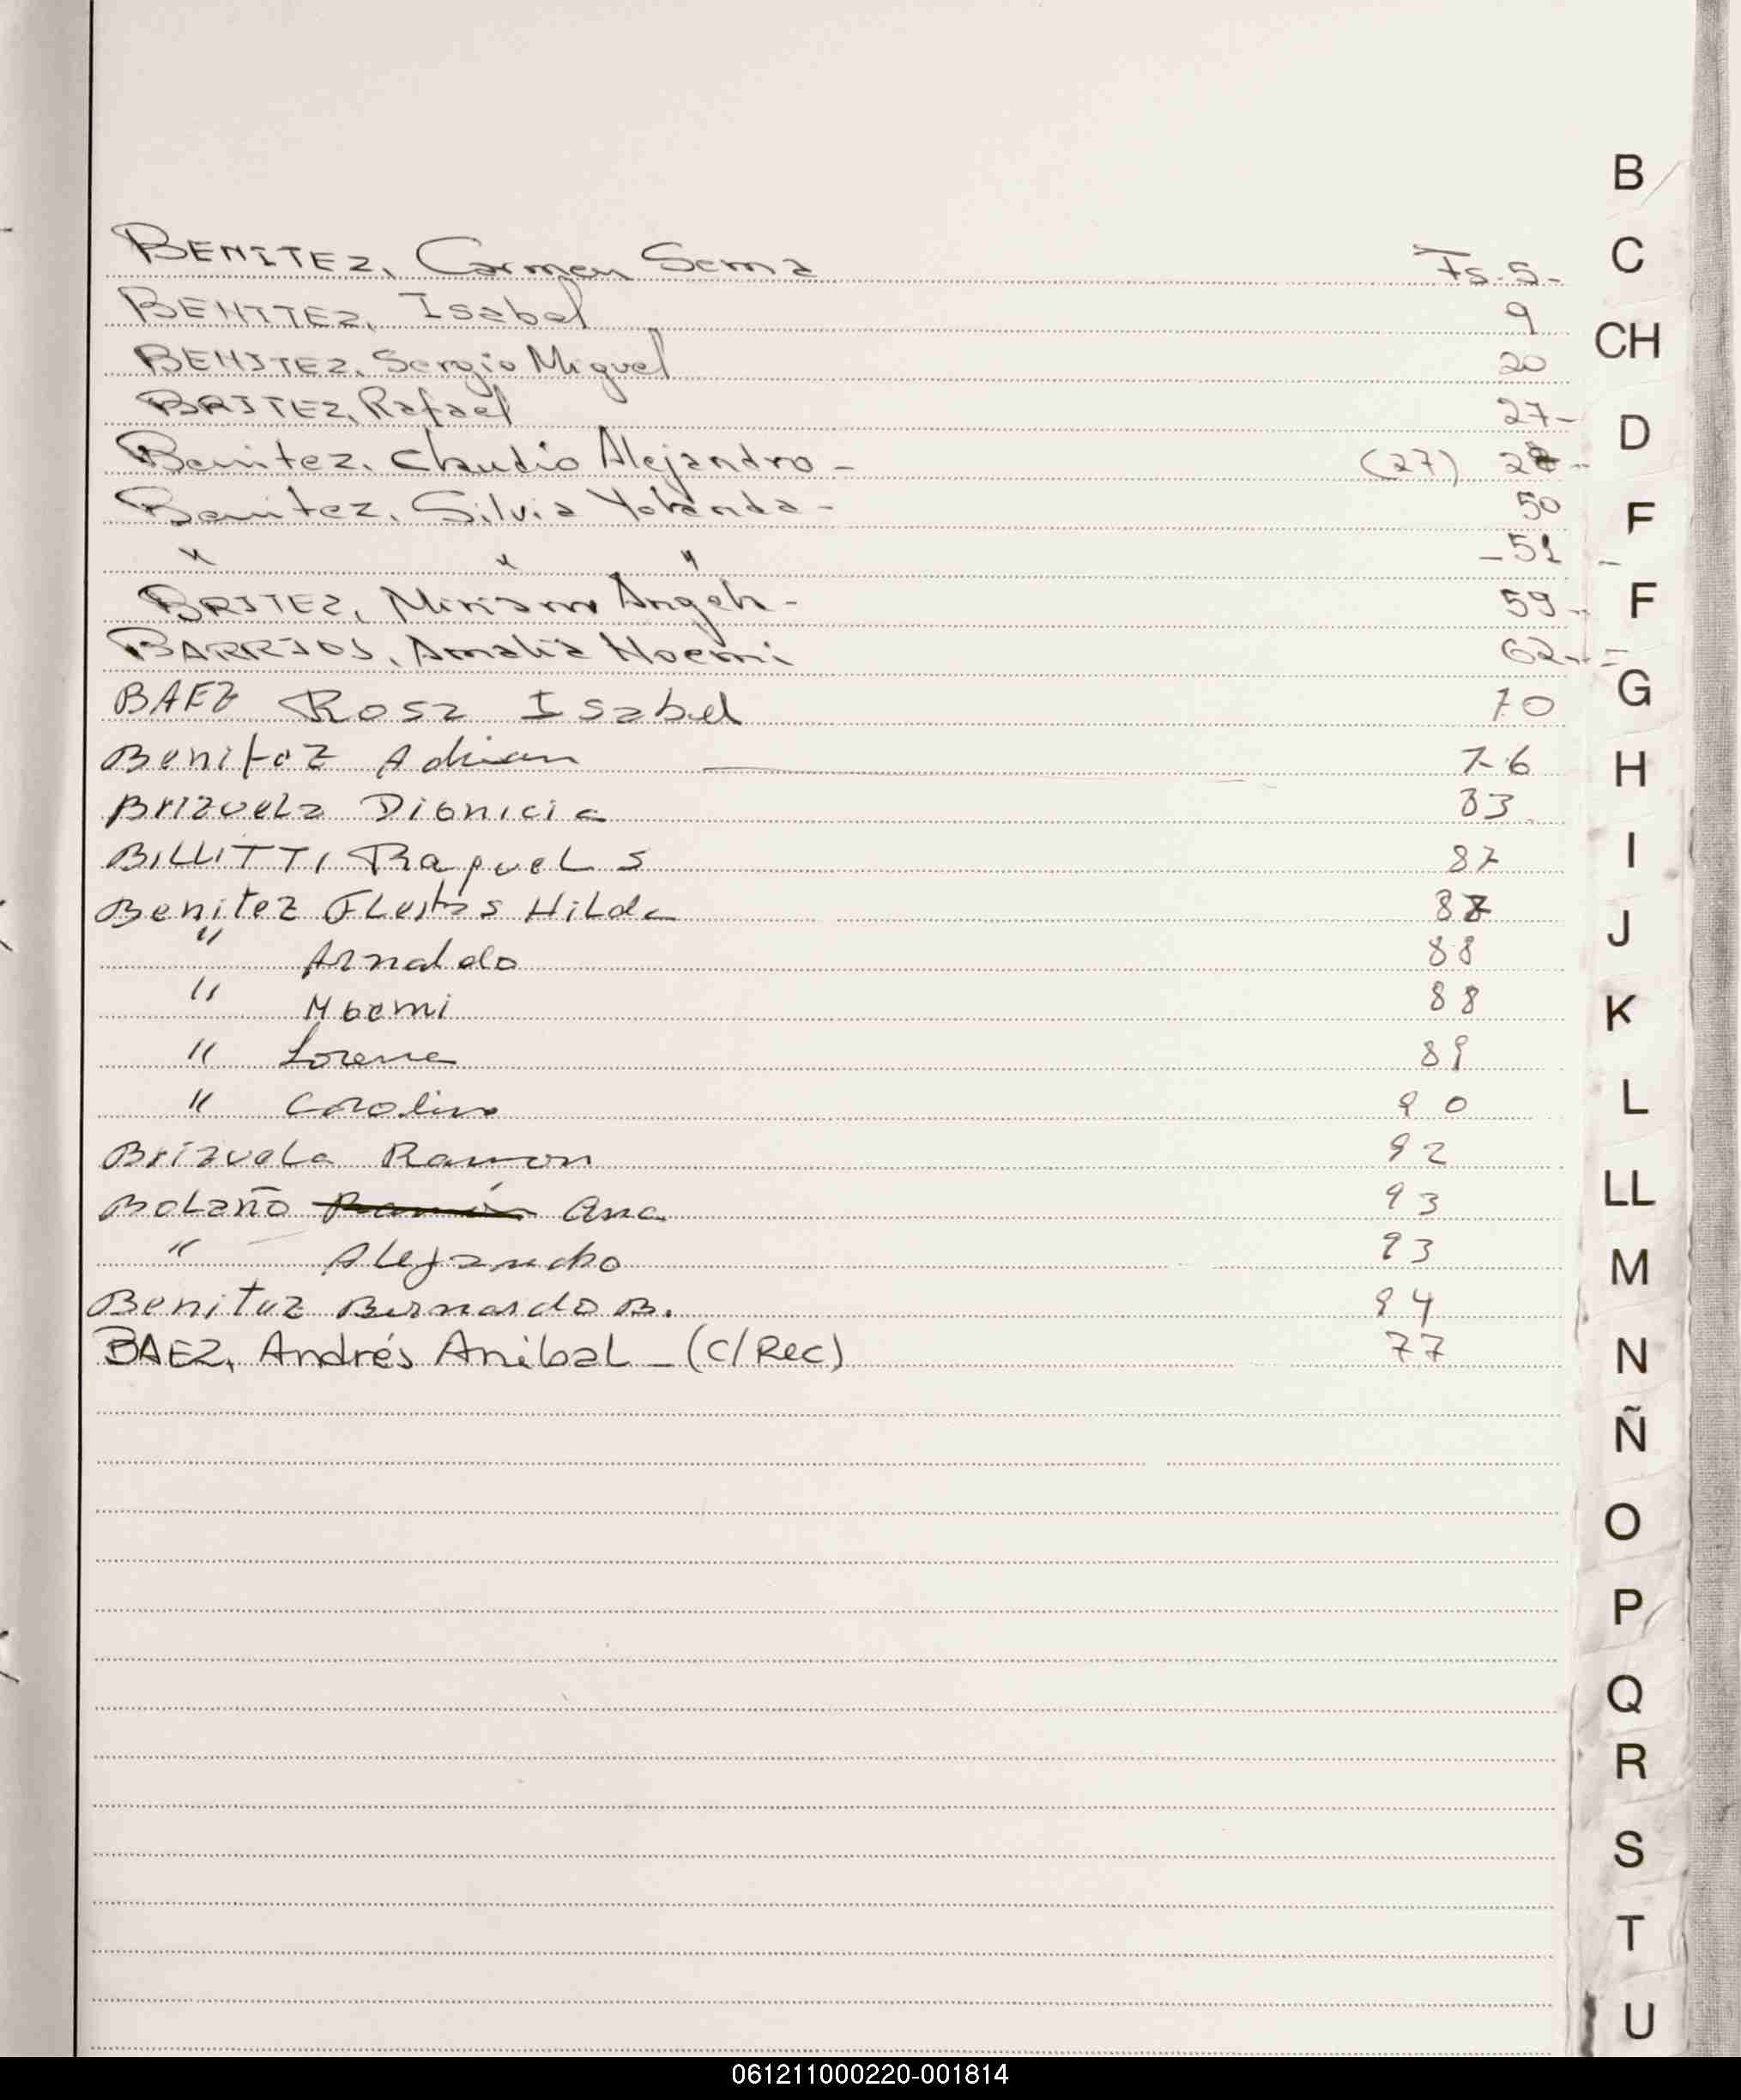 BENITEZ, Carmen Sema Fs. 5-
BENITEZ, Isabel 9
BENITEZ, Sergio Miguel 20
BRITEZ, Rafael 27-
Benitez, Claudio Alejandro - (27) 28
Benitez, Silvia Yolanda - 50
" " " -51
BRITEZ, Miriam Angela - 59-
BARRIOS, Amalia Noemi 62--
BAEZ Rosa Isabel 70
Benitez Adrian 76
Brizuela Dionicia 83
BILLITTI Raquel S 87
Benitez Fleitas Hilda 87
" Arnaldo 88
" Noemi 88
" Lorena 89
" Carolina 90
Brizuela Ramon 92
Bolaño Ramón Ana 93
" Alejandro 93
Benitez Bernardo B. 94
BAEZ, Andrés Anibal - (C/Rec) 77
B
C
CH
D
F
F
G
H
I
J
K
L
LL
M
N
Ñ
O
P
Q
R
S
T
U
061211000220-001814